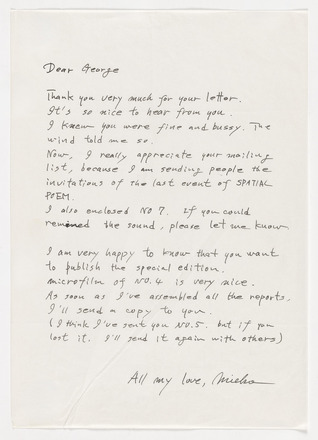 Dear George
Thank you very much for your letter.
It's so nice to hear from you.
I knew you were fine and bussy. The
wind told me so.
Now, I really appreciate your mailing
list, because I am sending people the
invitations of the last event of SPATIAL
POEM.
I also enclosed NO 7. If you could
the sound, please let me know
I am very happy to know that you want
to publish the special edition.
microfilm of NO.4 is very nice.
As soon as I've assembled all the reports.
I'll send a copy to you.
(I think I've sent you NO.5. but if you
lost it. I'll send it again with others)
All my love, Mieko